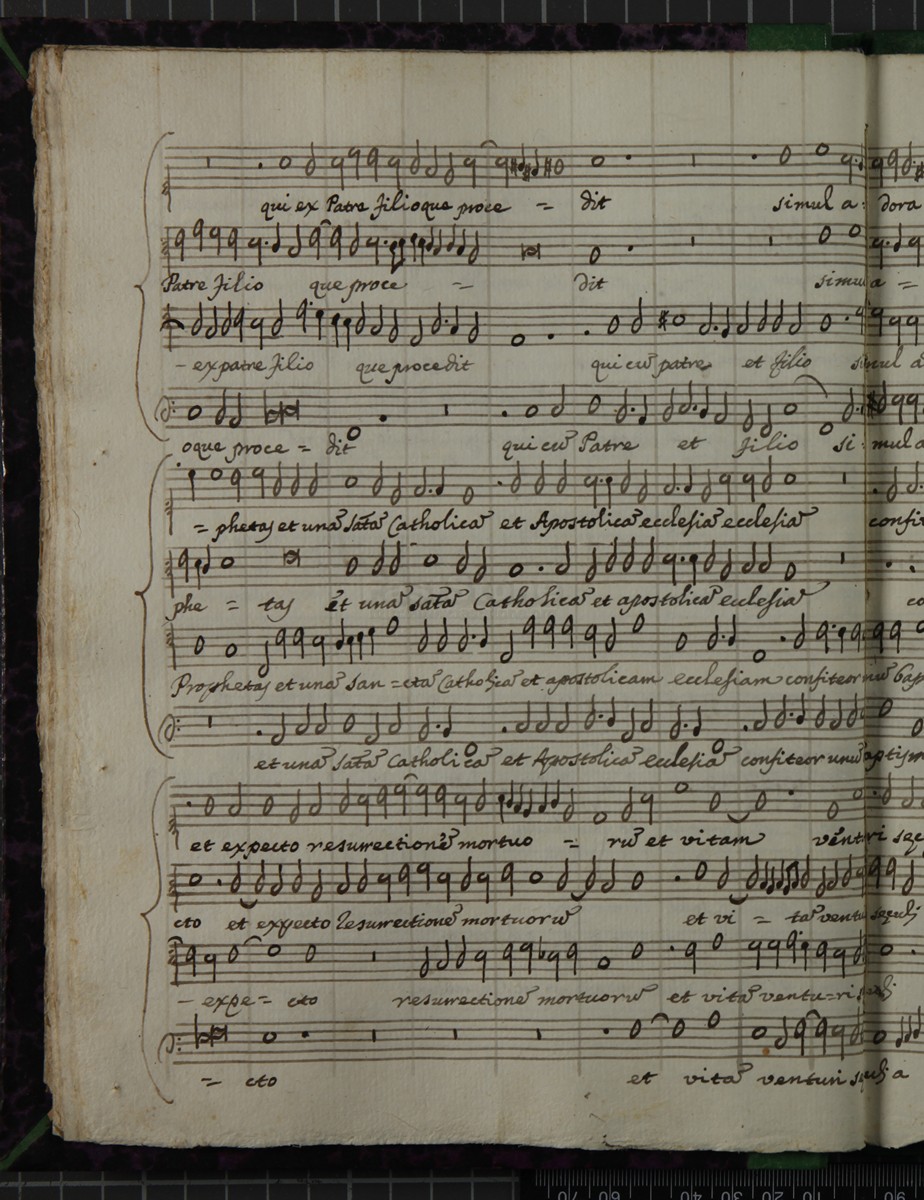 qui ex Patre filioque proce = dit simul a = dora
Patre filio que proce = dit simul a =
- ex patre filio que procedit qui cũ patre et filio simul a
oque proce = dit qui cũ Patre et filio si = mul a
= phetas et unã sãtã Catholicã et Apostolicã ecclesiã ecclesiã confi
phe = tas et unã sãtã Catholicã et apostolicã ecclesiã co
Prophetas et unã san = ctã Catholicã et apostolicam ecclesiam confiteor unũ bap
et unã sãtã Catholicã et Apostolicã ecclesiã confiteor unũ
et expecto resurrectionẽ mortuo = rũ et vitam ventu ri sec
cto et expecto Resurrectionẽ mortuorũ et vi = tã ventu seculi
- expe = cto resurrectionẽ mortuorũ et vitã ventu = ri
= cto et vitã venturi seculi a
70 60 50 40 30 20 10